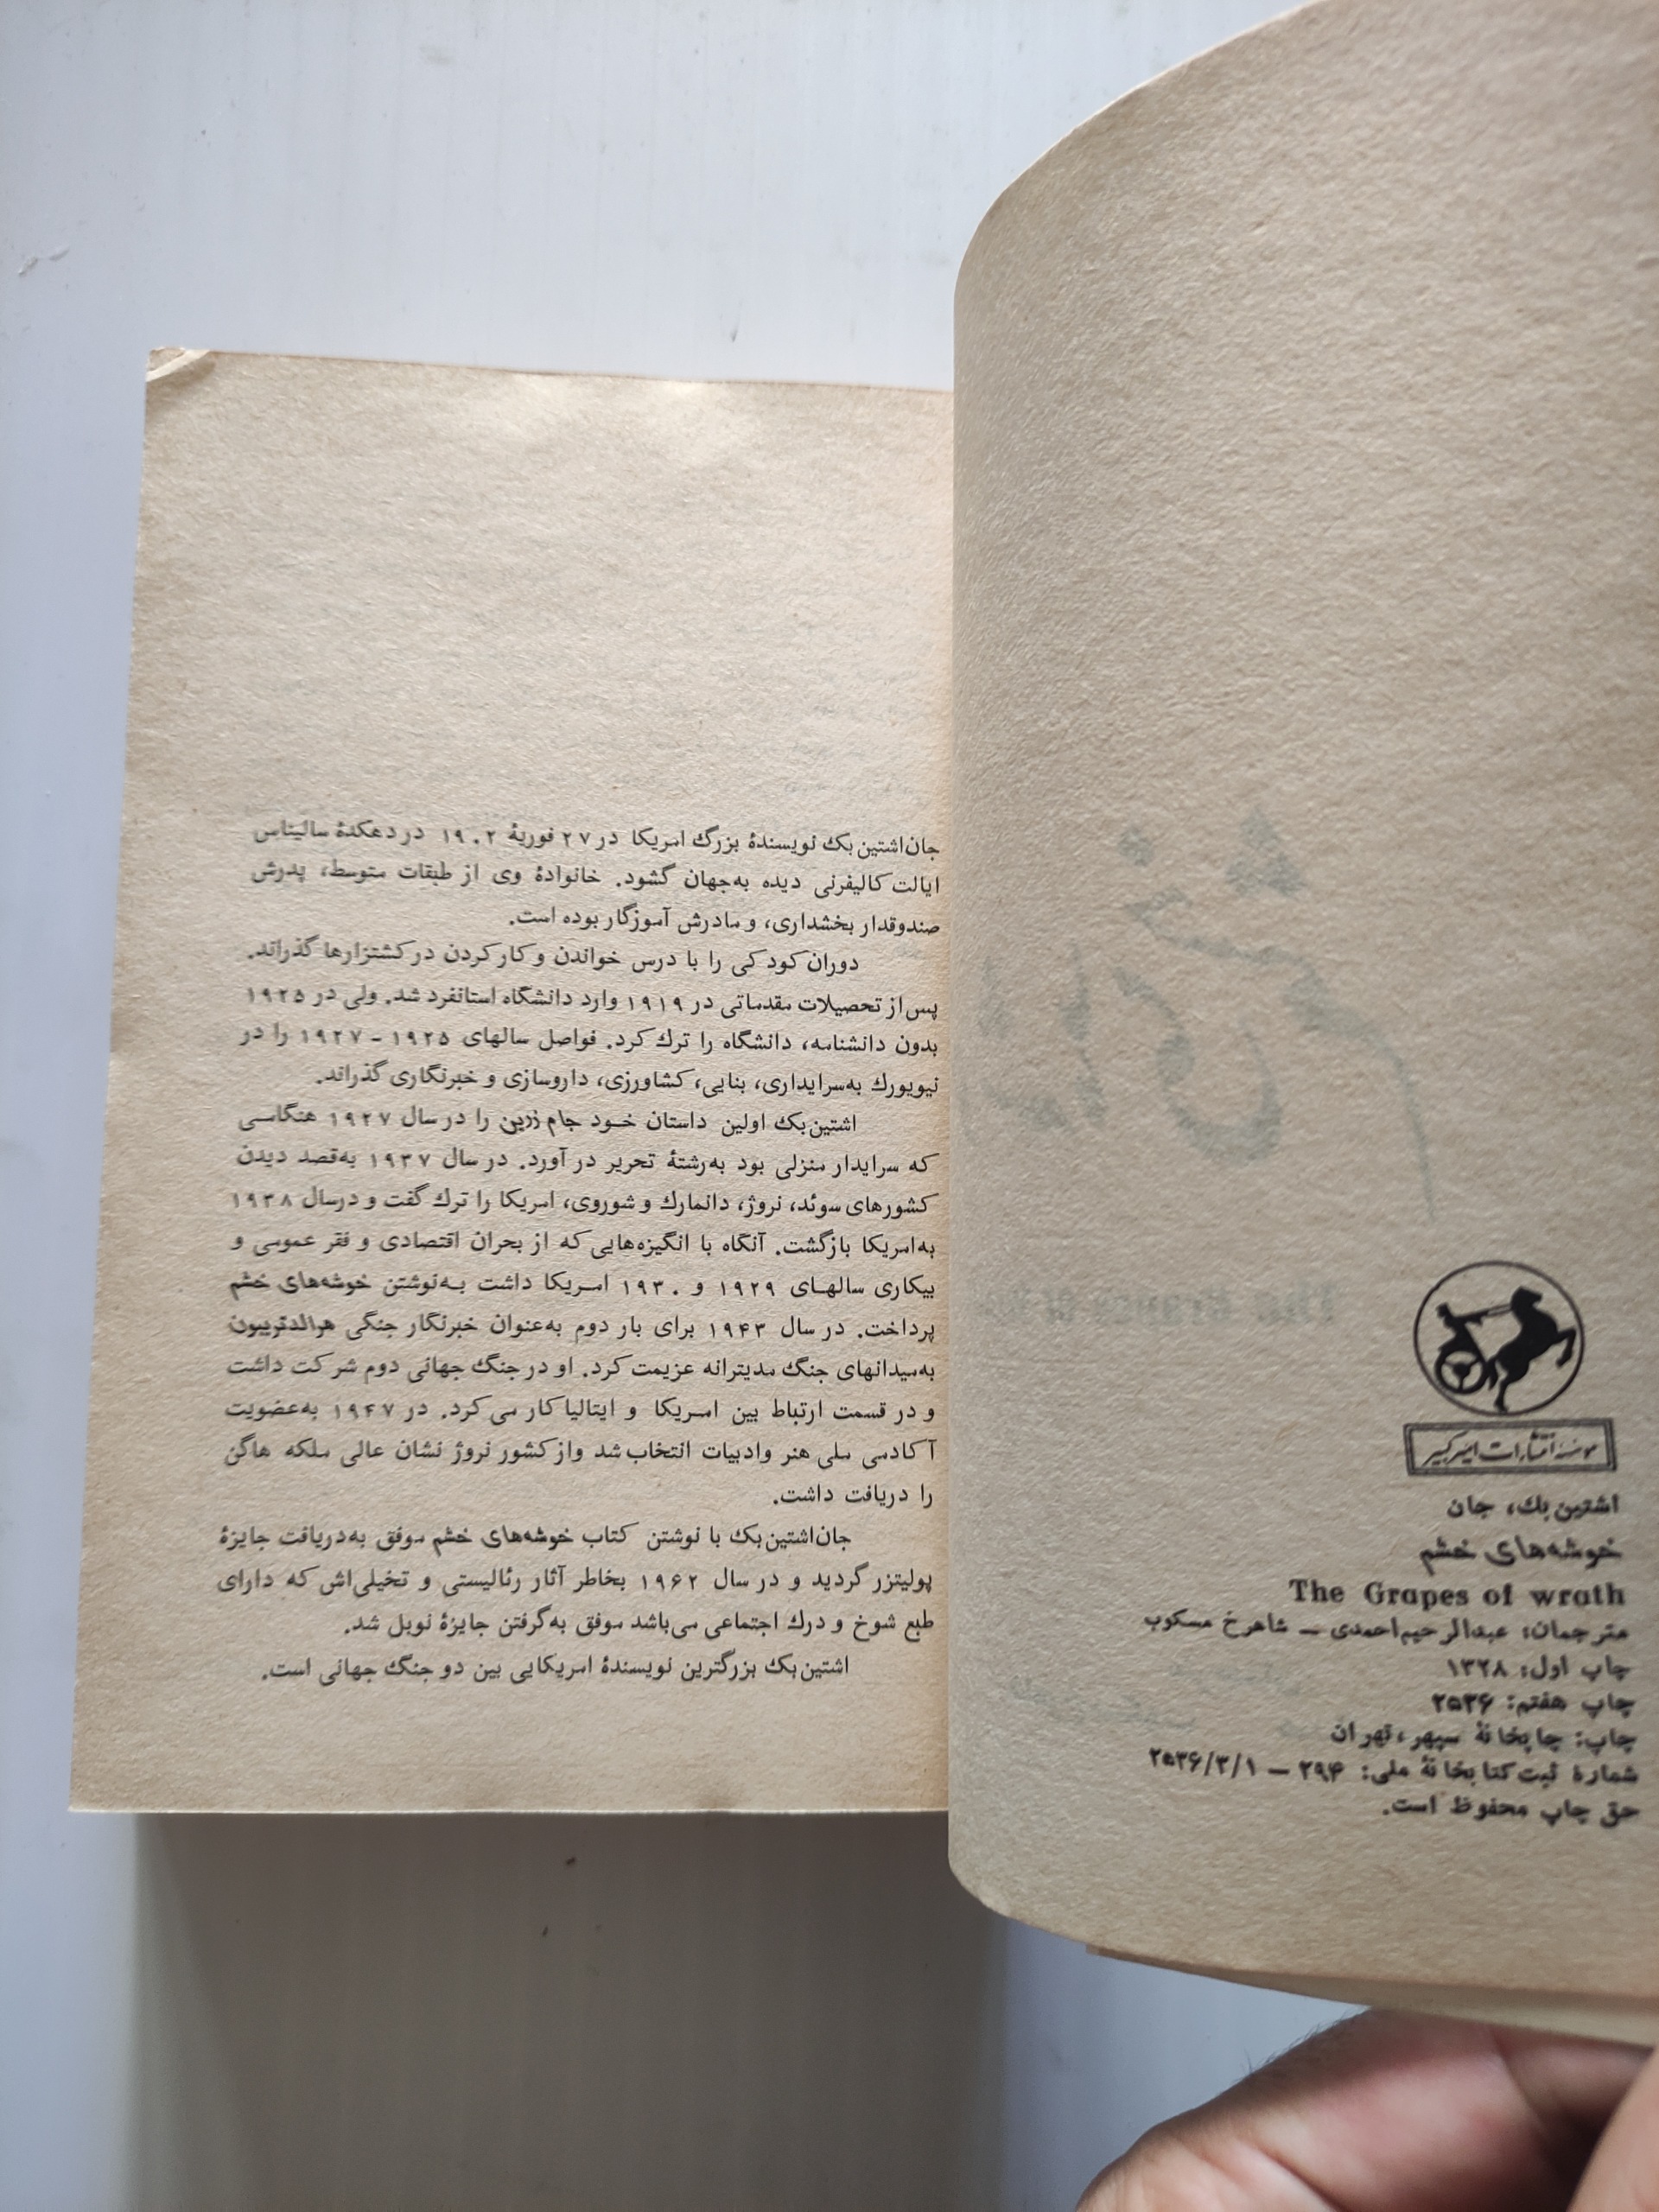 موسسهٔ انتشارات امیرکبیر
اشتین‌بك، جان
خوشه‌های خشم
The Grapes of wrath
مترجمان: عبدالرحیم احمدی – شاهرخ مسکوب
چاپ اول: ۱۳۲۸
چاپ هفتم: ۲۵۳۶
چاپ: چاپخانهٔ سپهر، تهران
شمارهٔ ثبت کتابخانهٔ ملی: ۲۹۴ – ۲۵۳۶/۳/۱
حق چاپ محفوظ است.
جان اشتین‌بك نویسندهٔ بزرگ امریکا در ۲۷ فوریهٔ ۱۹۰۲ در دهکدهٔ سالیناس
ایالت کالیفرنی دیده به‌جهان گشود. خانوادهٔ وی از طبقات متوسط، پدرش
صندوقدار بخشداری، و مادرش آموزگار بوده است.
دوران کودکی را با درس خواندن و کار کردن در کشتزارها گذراند.
پس از تحصیلات مقدماتی در ۱۹۱۹ وارد دانشگاه استانفرد شد. ولی در ۱۹۲۵
بدون دانشنامه، دانشگاه را ترك کرد. فواصل سالهای ۱۹۲۵ – ۱۹۲۷ را در
نیویورك به‌سرایداری، بنایی، کشاورزی، داروسازی و خبرنگاری گذراند.
اشتین‌بك اولین داستان خود جام زرین را در سال ۱۹۲۷ هنگامی
که سرایدار منزلی بود به‌رشتهٔ تحریر در آورد. در سال ۱۹۳۷ به‌قصد دیدن
کشورهای سوئد، نروژ، دانمارك و شوروی، امریکا را ترك گفت و در سال ۱۹۳۸
به‌امریکا بازگشت. آنگاه با انگیزه‌هایی که از بحران اقتصادی و فقر عمومی و
بیکاری سالهای ۱۹۲۹ و ۱۹۳۰ امریکا داشت به‌نوشتن خوشه‌های خشم
پرداخت. در سال ۱۹۴۳ برای بار دوم به‌عنوان خبرنگار جنگی هرالدتریبون
به‌میدانهای جنگ مدیترانه عزیمت کرد. او در جنگ جهانی دوم شرکت داشت
و در قسمت ارتباط بین امریکا و ایتالیا کار می‌کرد. در ۱۹۴۷ به‌عضویت
آکادمی ملی هنر وادبیات انتخاب شد واز کشور نروژ نشان عالی ملکه هاگن
را دریافت داشت.
جان اشتین‌بك با نوشتن کتاب خوشه‌های خشم موفق به‌دریافت جایزهٔ
پولیتزر گردید و در سال ۱۹۶۲ بخاطر آثار رئالیستی و تخیلی‌اش که دارای
طبع شوخ و درك اجتماعی می‌باشد موفق به‌گرفتن جایزهٔ نوبل شد.
اشتین‌بك بزرگترین نویسندهٔ امریکایی بین دو جنگ جهانی است.